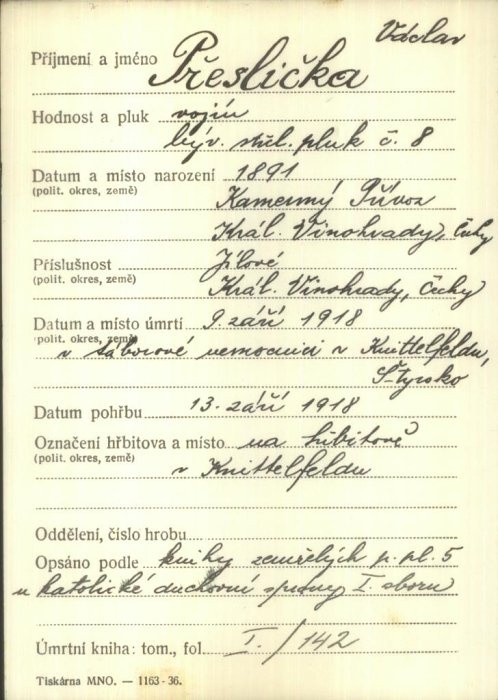 Václav
Příjmení a jméno Přeslička
Hodnost a pluk vojín
býv. střel. pluk č. 8
Datum a místo narození 1891
(polit. okres, země) Kamenný Přívoz
Král. Vinohrady, Čechy
Příslušnost Jílové
(polit. okres, země) Král. Vinohrady, Čechy
Datum a místo úmrtí 9. září 1918
(polit. okres, země)
v táborové nemocnici v Knittelfeldu,
Štyrsko
Datum pohřbu 13. září 1918
Označení hřbitova a místo na hřbitově
(polit. okres, země) v Knittelfeldu
Oddělení, číslo hrobu
Opsáno podle knihy zemřelých p. pl. 5
u katolické duchovní správy I. sboru
Úmrtní kniha: tom., fol. I. / 142
Tiskárna MNO. — 1163-36.